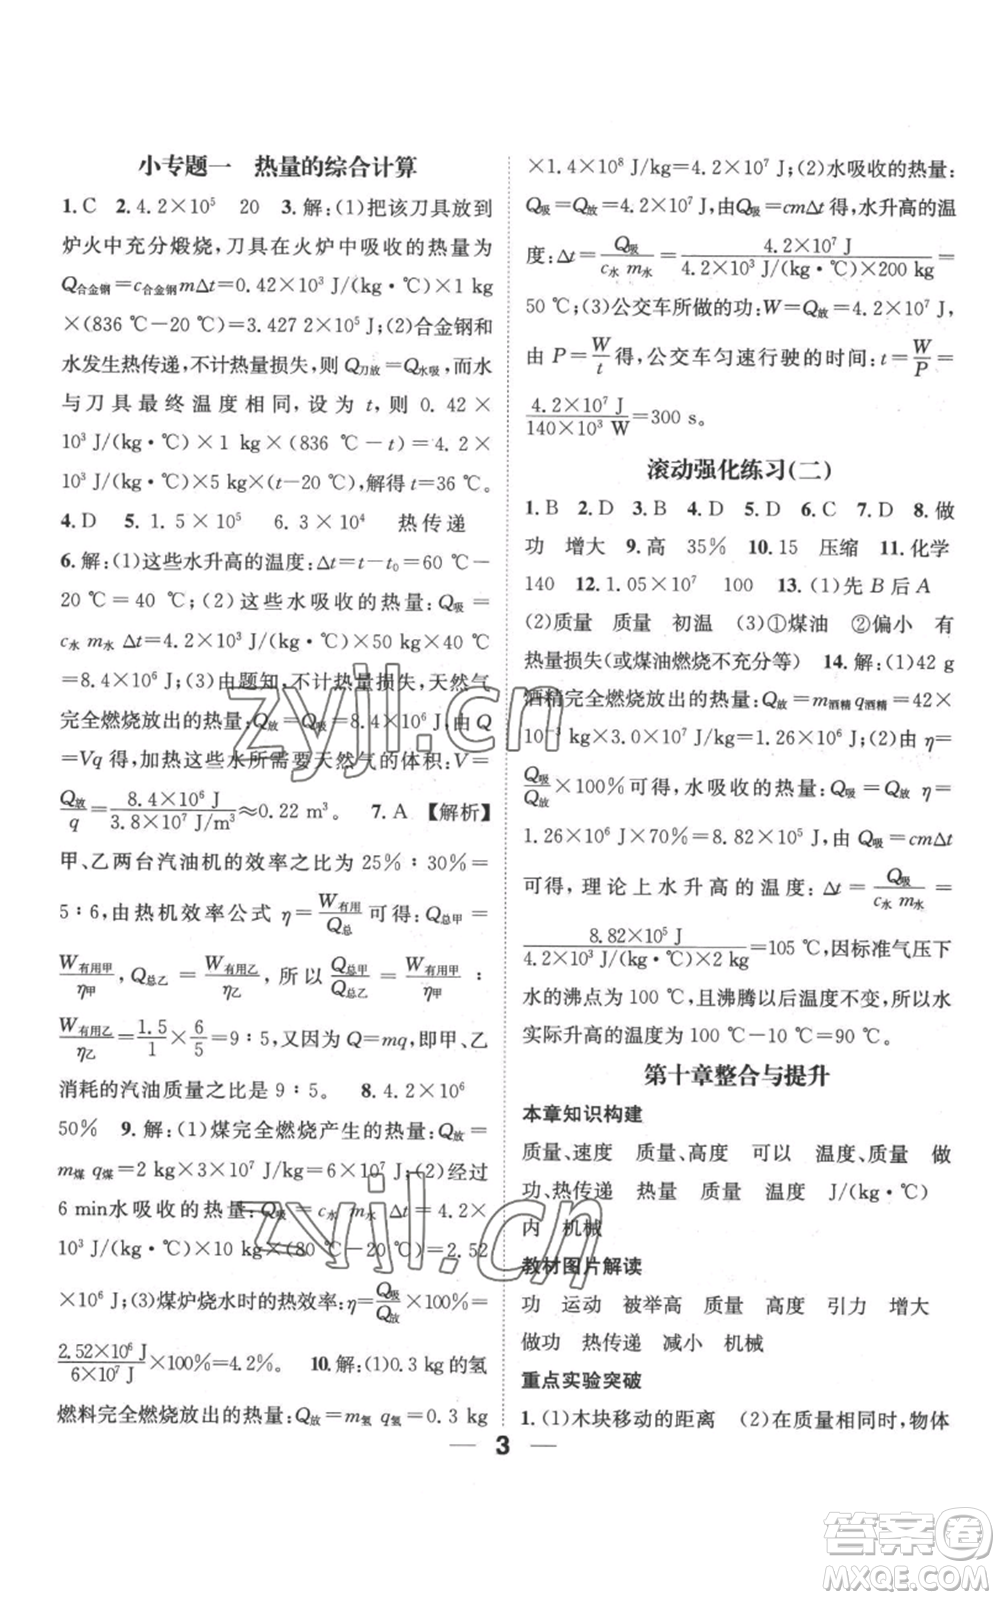 小专题一　热量的综合计算
1. C　2. 4.2×10⁵　20　3. 解:(1)把该刀具放到
炉火中充分煅烧,刀具在火炉中吸收的热量为
Q合金钢=c合金钢mΔt=0.42×10³ J/(kg·℃)×1 kg
×(836 ℃-20 ℃)=3.427 2×10⁵ J;(2)合金钢和
水发生热传递,不计热量损失,则 Q刀放=Q水吸,而水
与刀具最终温度相同,设为 t,则 0.42×
10³ J/(kg·℃)×1 kg×(836 ℃-t)=4.2×
10³ J/(kg·℃)×5 kg×(t-20 ℃),解得t=36 ℃。
4. D　5. 1.5×10⁵　6.3×10⁴　热传递
6. 解:(1)这些水升高的温度:Δt=t-t₀=60 ℃-
20 ℃=40 ℃;(2)这些水吸收的热量:Q吸=
c水 m水 Δt=4.2×10³ J/(kg·℃)×50 kg×40 ℃
=8.4×10⁶ J;(3)由题知,不计热量损失,天然气
完全燃烧放出的热量:Q放=Q吸=8.4×10⁶ J,由 Q
=Vq 得,加热这些水所需要天然气的体积:V=
Q放/q=8.4×10⁶ J/3.8×10⁷ J/m³≈0.22 m³。　7. A　【解析】
甲、乙两台汽油机的效率之比为 25%∶30%=
5∶6,由热机效率公式 η=W有用/Q总 可得:Q总甲=
W有用甲/η甲,Q总乙=W有用乙/η乙,所以 Q总甲/Q总乙=W有用甲/η甲∶
W有用乙/η乙=1.5/1×6/5=9∶5,又因为 Q=mq,即甲、乙
消耗的汽油质量之比是 9∶5。　8. 4.2×10⁶
50%　9. 解:(1)煤完全燃烧产生的热量:Q放=
m煤 q煤=2 kg×3×10⁷ J/kg=6×10⁷ J;(2)经过
6 min水吸收的热量:Q吸=c水 m水 Δt=4.2×
10³ J/(kg·℃)×10 kg×(80 ℃-20 ℃)=2.52
×10⁶ J;(3)煤炉烧水时的热效率:η=Q吸/Q放×100%=
2.52×10⁶ J/6×10⁷ J×100%=4.2%。　10. 解:(1)0.3 kg的氢
燃料完全燃烧放出的热量:Q放=m氢 q氢=0.3 kg
×1.4×10⁸ J/kg=4.2×10⁷ J;(2)水吸收的热量:
Q吸=Q放=4.2×10⁷ J,由 Q吸=cmΔt 得,水升高的温
度:Δt=Q吸/c水 m水=4.2×10⁷ J/4.2×10³ J/(kg·℃)×200 kg=
50 ℃;(3)公交车所做的功:W=Q放=4.2×10⁷ J,
由 P=W/t得,公交车匀速行驶的时间:t=W/P=
4.2×10⁷ J/140×10³ W=300 s。
滚动强化练习(二)
1. B　2. D　3. B　4. D　5. D　6. C　7. D　8. 做
功　增大　9. 高　35%　10. 15　压缩　11. 化学
140　12. 1.05×10⁷　100　13. (1)先 B 后 A
(2)质量　质量　初温　(3)①煤油　②偏小　有
热量损失(或煤油燃烧不充分等)　14. 解:(1)42 g
酒精完全燃烧放出的热量:Q放=m酒精 q酒精=42×
10⁻³ kg×3.0×10⁷ J/kg=1.26×10⁶ J;(2)由 η=
Q吸/Q放×100%可得,水吸收的热量:Q吸=Q放 η=
1.26×10⁶ J×70%=8.82×10⁵ J,由 Q吸=cmΔt
可得,理论上水升高的温度:Δt=Q吸/c水 m水=
8.82×10⁵ J/4.2×10³ J/(kg·℃)×2 kg=105 ℃,因标准气压下
水的沸点为 100 ℃,且沸腾以后温度不变,所以水
实际升高的温度为 100 ℃-10 ℃=90 ℃。
第十章整合与提升
本章知识构建
质量、速度　质量、高度　可以　运动　质量　做
功、热传递　热量　质量　温度　J/(kg·℃)
内　机械
教材图片解读
功　运动　被举高　质量　高度　引力　增大
做功　热传递　减小　机械
重点实验突破
1. (1)木块移动的距离　(2)在质量相同时,物体
3
zyjl.cn
zyjl.cn
答案圈
MXQE.COM